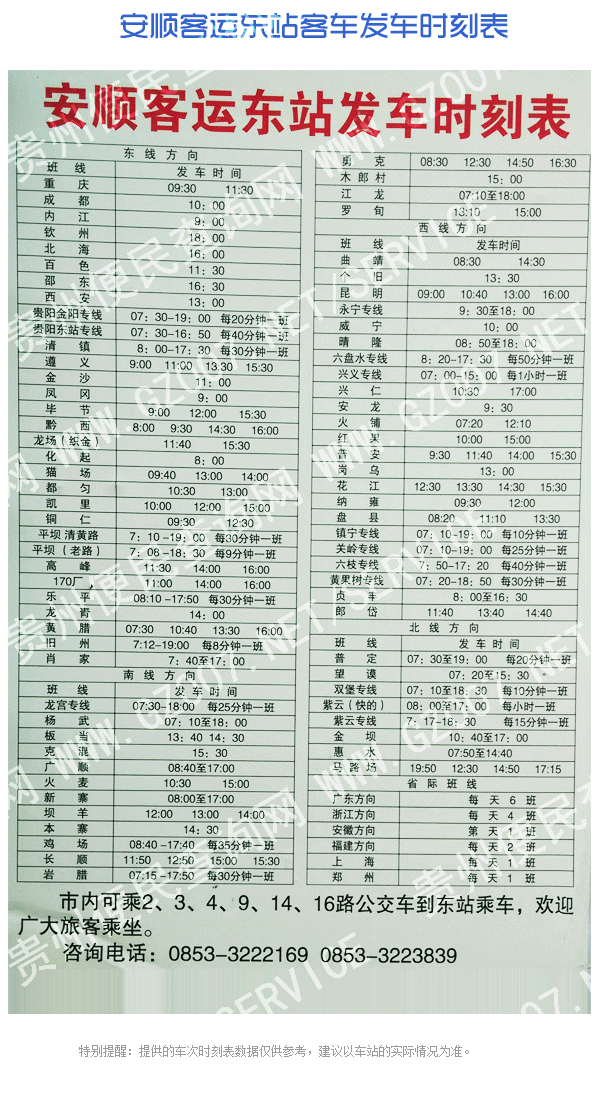 安顺客运东站客车发车时刻表
安顺客运东站发车时刻表
东线方向
班线 发车时间
重庆 09:30 11:30
成都 10:00
内江 9:00
钦州 18:00
北海 16:00
百色 11:30
邵东 16:30
西安 13:00
贵阳金阳专线 07:30-19:00 每20分钟一班
贵阳东站专线 07:30-16:50 每40分钟一班
清镇 8:00-17:30 每30分钟一班
遵义 9:00 11:00 13:30 15:30
金沙 11:00
凤冈 9:00
毕节 9:00 12:00 15:30
黔西 8:00 9:30 14:30 16:00
龙场(织金) 11:40 15:30
化起 8:00
猫场 09:40 13:00 14:00
都匀 10:30 13:00
凯里 10:00 12:00 15:00
铜仁 09:30 12:30
平坝 清黄路 7:10-19:00 每30分钟一班
平坝(老路) 7:08-18:30 每9分钟一班
高峰 11:30 14:00 16:00
170厂, 11:00 14:00 16:00
乐平 08:10-17:50 每30分钟一班
龙青 14:00
黄腊 07:30 10:40 13:30 16:00
旧州 7:12-19:00 每8分钟一班
肖家 7:40至17:00
南线方向
班线 发车时间
龙宫专线 07:30-18:00 每25分钟一班
杨武 07:10至18:00
板当 13:40 14:30
克混 15:30
广顺 08:40至17:00
火麦 10:30 15:00
新寨 08:00至17:00
坝羊 12:00 13:00 14:00
本寨 14:30
鸡场 08:40-17:40 每35分钟一班
长顺 11:50 12:50 15:00 15:30
岩腊 07:15-17:50 每30分钟一班
勇克 08:30 12:30 14:50 16:30
木郎村 15:00
江龙 07:10至18:00
罗甸 13:10 15:00
西线方向
班线 发车时间
曲靖 08:30 14:30
个旧 13:30
昆明 09:00 10:40 13:00 16:00
永宁专线 9:30至18:00
威宁 10:00
晴隆 08:50至18:00
六盘水专线 8:20-17:30 每50分钟一班
兴义专线 07:00-15:00 每1小时一班
兴仁 10:30 17:00
安龙 9:30
火铺 07:20 12:10
红果 10:00 15:00
普安 9:30 11:40 14:00 15:30
岗乌 13:00
花江 12:30 13:30 14:30 15:30
纳雍 09:30 12:00
盘县 08:20 11:10 13:30
镇宁专线 07:10-19:00 每10分钟一班
关岭专线 07:10-19:00 每25分钟一班
六枝专线 7:50-17:20 每40分钟一班
黄果树专线 07:20-18:50 每30分钟一班
贞丰 8:00至16:30
郎岱 11:40 13:40 14:40
北线方向
班线 发车时间
普定 07:30至19:00 每20分钟一班
望谟 07:20至15:30
双堡专线 07:10至18:30 每10分钟一班
紫云(快的) 08:00至17:00 每小时一班
紫云专线 7:17-18:30 每15分钟一班
金坝 10:40至17:00
惠水 07:50至14:40
马路场 19:50 12:30 14:50 17:15
省际班线
广东方向 每天6班
浙江方向 每天4班
安徽方向 第天1班
福建方向 每天2班
上海 每天1班
郑州 每天1班
市内可乘2、3、4、9、14、16路公交车到东站乘车，欢迎
广大旅客乘坐。
咨询电话：0853-3222169 0853-3223839
特别提醒：提供的车次时刻表数据仅供参考，建议以车站的实际情况为准。
贵州便民查询网 WWW.GZ007.NET/SERVICE